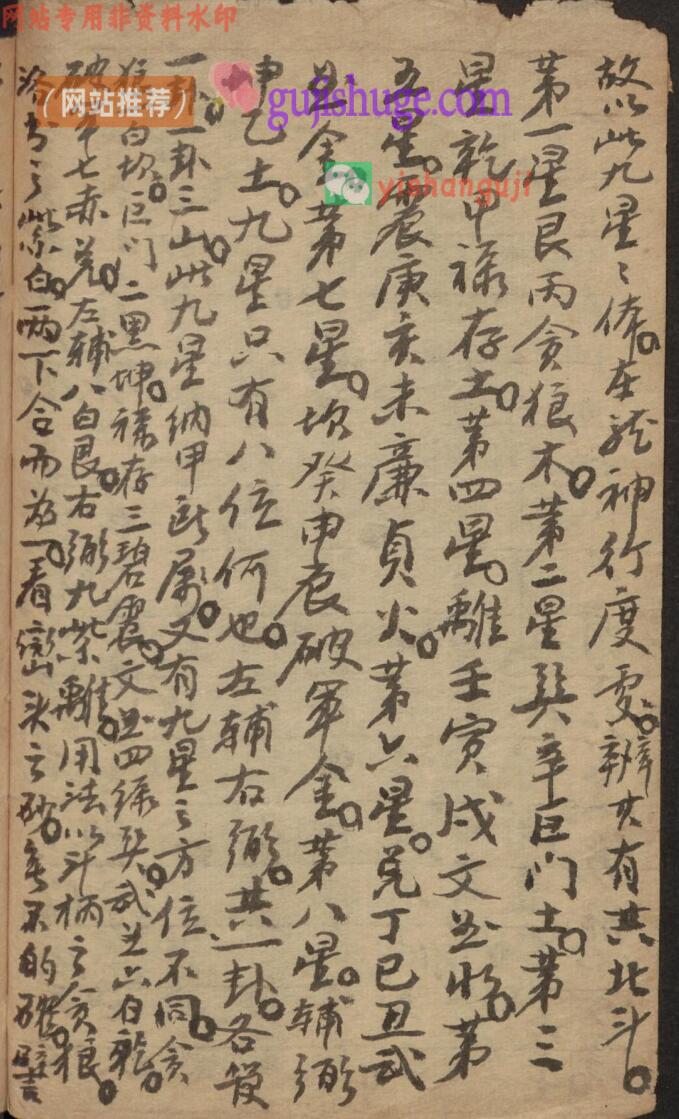 网站专用非资料水印
（网站推荐）
gujishuge.com
yishanguji
故以此九星〻体在龙神行度处辨共有共北斗
第一星艮丙贪狼木第二星巽辛巨门土第三
星乾甲禄存土第四星離壬寅戌文曲水第
五星震庚亥未廉贞火第六星兑丁巳丑武
曲金第七星坎癸申辰破军金第八星辅弼
坤乙土九星只有八位何也左辅右弼共一卦各管
一卦三山此九星纳甲所属又有九星之方位不同贪
狼一白坎巨门二黑坤禄存三碧震文曲四绿巽武曲六白乾
破军七赤兑左辅八白艮右弼九紫離用法以斗柄之贪狼
之紫白一两下合而为一看峦头之砂无不的確